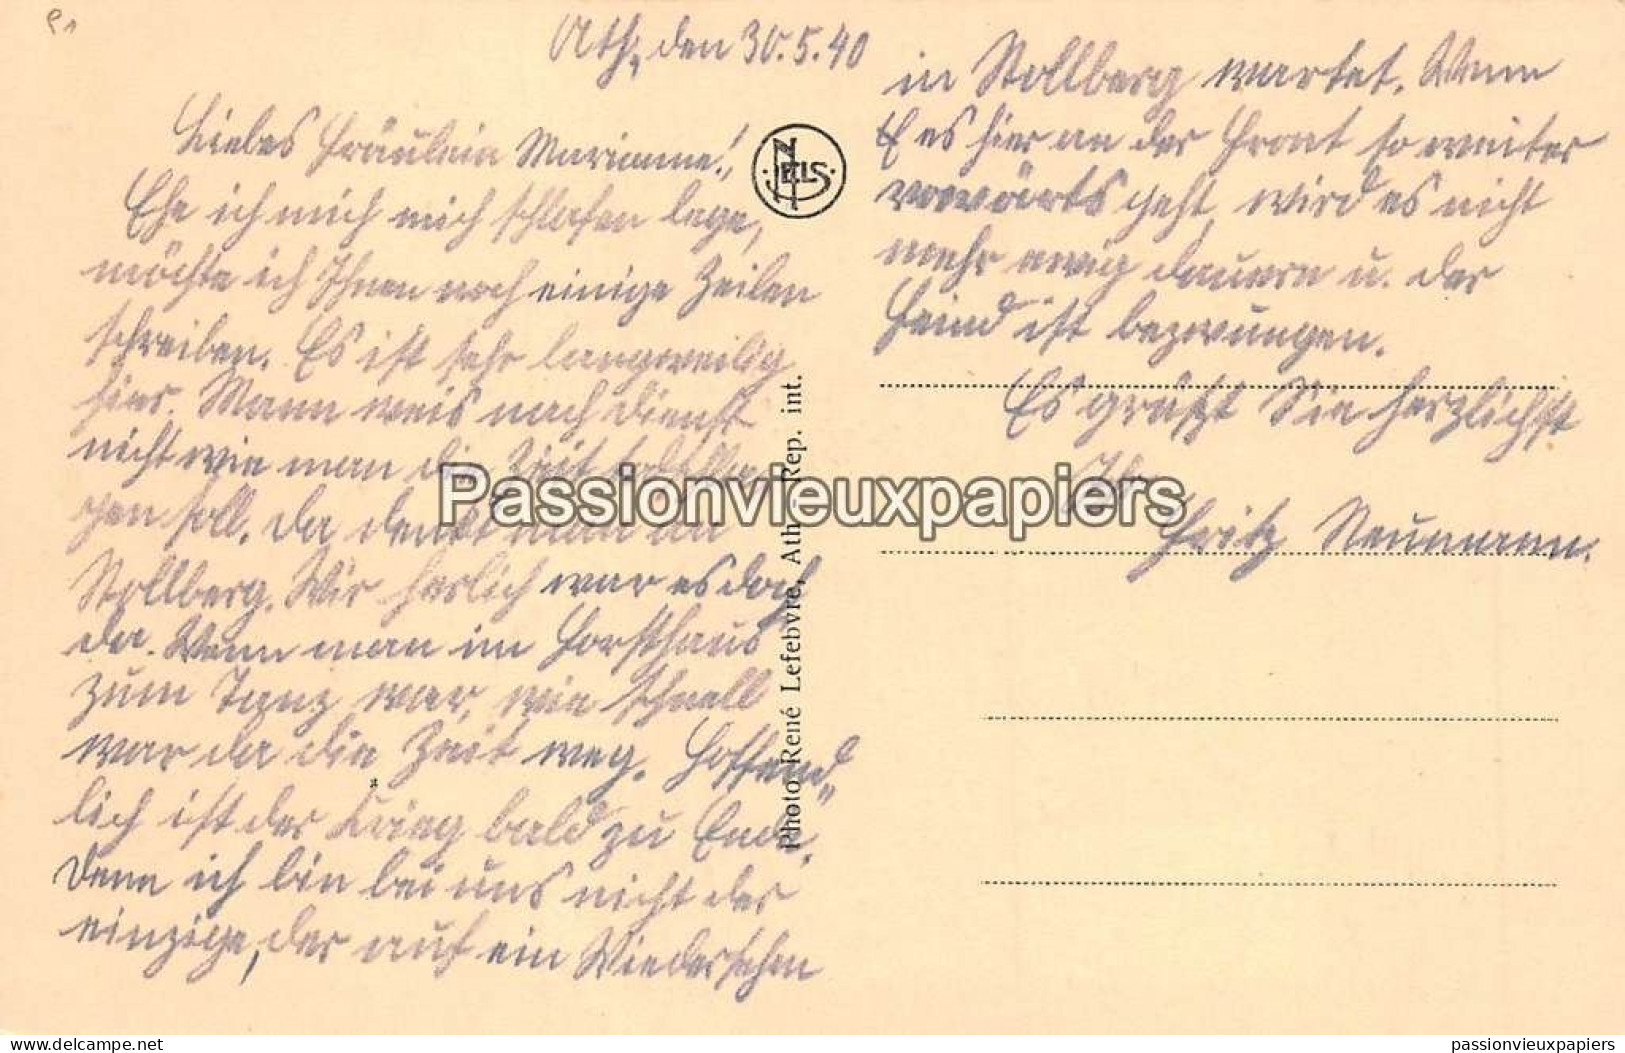 Ath, den 30.5.40
Liebes Fräulein Marianne!,
Ehe ich mich mich schlafen lege,
möchte ich Ihnen noch einige Zeilen
schreiben. Es ist sehr langweilig
hier. Mann weis nach Dienst
nicht wie man die Zeit
gen soll. Da denkt man an
Stollberg. Wir herlich war es doch
da. Wenn man im Forsthaus
zum Tanz war, wie schnell
war da die Zeit weg. Hoffend"
lich ist der Krieg bald zu Ende.
Denn ich bin bei uns nicht der
einzige, der auf ein Wiedersehen
in Stollberg wartet. Wenn
es hier an der Front so weiter
vorwärts geht, wird es nicht
mehr ewig dauern u. der
Feind ist bezwungen.
Es grüßt Sie herzlichst
Ihr
Fritz Neumann.
NELS
Photo René Lefebvre, Ath - Rep. int.
Passionvieuxpapiers
www.delcampe.net
passionvieuxpapiers